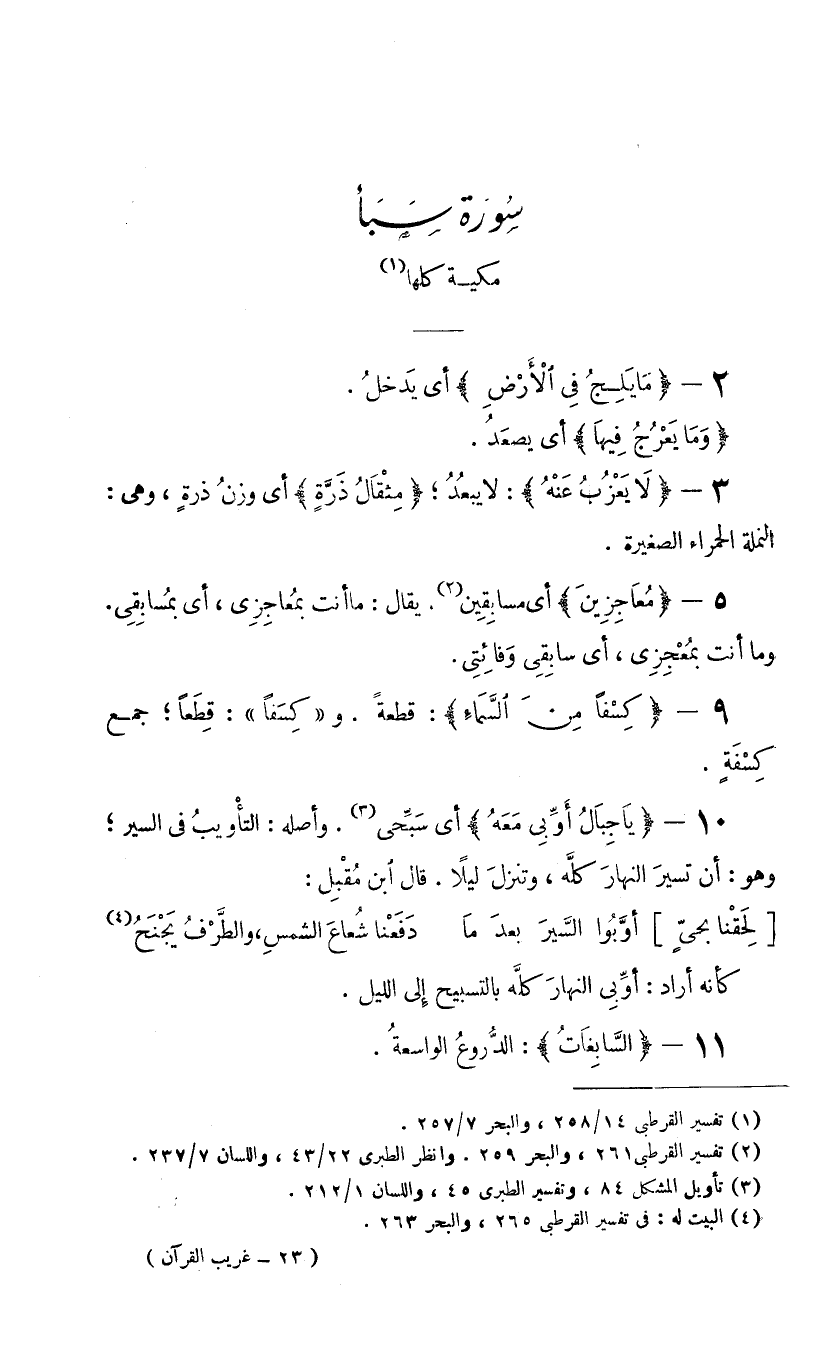 سُورَة سَبَأ
مكيـة كلها(١)
٢ — ﴿ مَا يَلِـجُ فِي ٱلْأَرْضِ ﴾ أى يَدخلُ .
﴿ وَمَا يَعْرُجُ فِيهَا ﴾ أى يصعَدُ .
٣ — ﴿ لَا يَعْزُبُ عَنْهُ ﴾ : لا يبعُدُ ؛ ﴿ مِثْقَالُ ذَرَّةٍ ﴾ أى وزنُ ذرةٍ ، وهى :
النملة الحمراء الصغيرة .
٥ — ﴿ مُعَاجِزِينَ ﴾ أى مسابِقِين(٢). يقال : ما أنت بمُعاجِزِى ، أى بمُسابِقِي.
وما أنت بمُعْجِزِى ، أى سابِقِي وَفائِتِى .
٩ — ﴿ كِسْفًا مِنَ ٱلسَّمَاءِ ﴾ : قطعةً . و « كِسَفًا » : قِطَعاً ؛ جمـع
كِسْفَةٍ .
١٠ — ﴿ يَاجِبَالُ أَوِّبِي مَعَهُ ﴾ أى سَبِّحى(٣) . وأصله : التأْويبُ فى السير ؛
وهو : أن تسيرَ النهارَ كلَّه ، وتنزلَ ليلًا . قال ٱبن مُقْبِل :
[ لَحِقْنا بحيٍّ ] أوَّبُوا السَّيرَ بعدَ ما دَفَعْنا شُعاعَ الشمسِ،والطَّرْفُ يَجْنَحُ(٤)
كأنه أراد : أوِّبِي النهارَ كلَّه بالتسبيح إلى الليل .
١١ — ﴿ السَّابِغَاتُ ﴾ : الدُّروعُ الواسعةُ .
(١) تفسير القرطبى ٢٥٨/١٤ ، والبحر ٢٥٧/٧ .
(٢) تفسير القرطبى ٢٦١ ، والبحر ٢٥٩ . وانظر الطبرى ٤٣/٢٢ ، واللسان ٢٣٧/٧ .
(٣) تأويل المشكل ٨٤ ، وتفسير الطبرى ٤٥ ، واللسان ٢١٢/١ .
(٤) البيت له : فى تفسير القرطبى ٢٦٥ ، والبحر ٢٦٣ .
( ٢٣ – غريب القرآن )